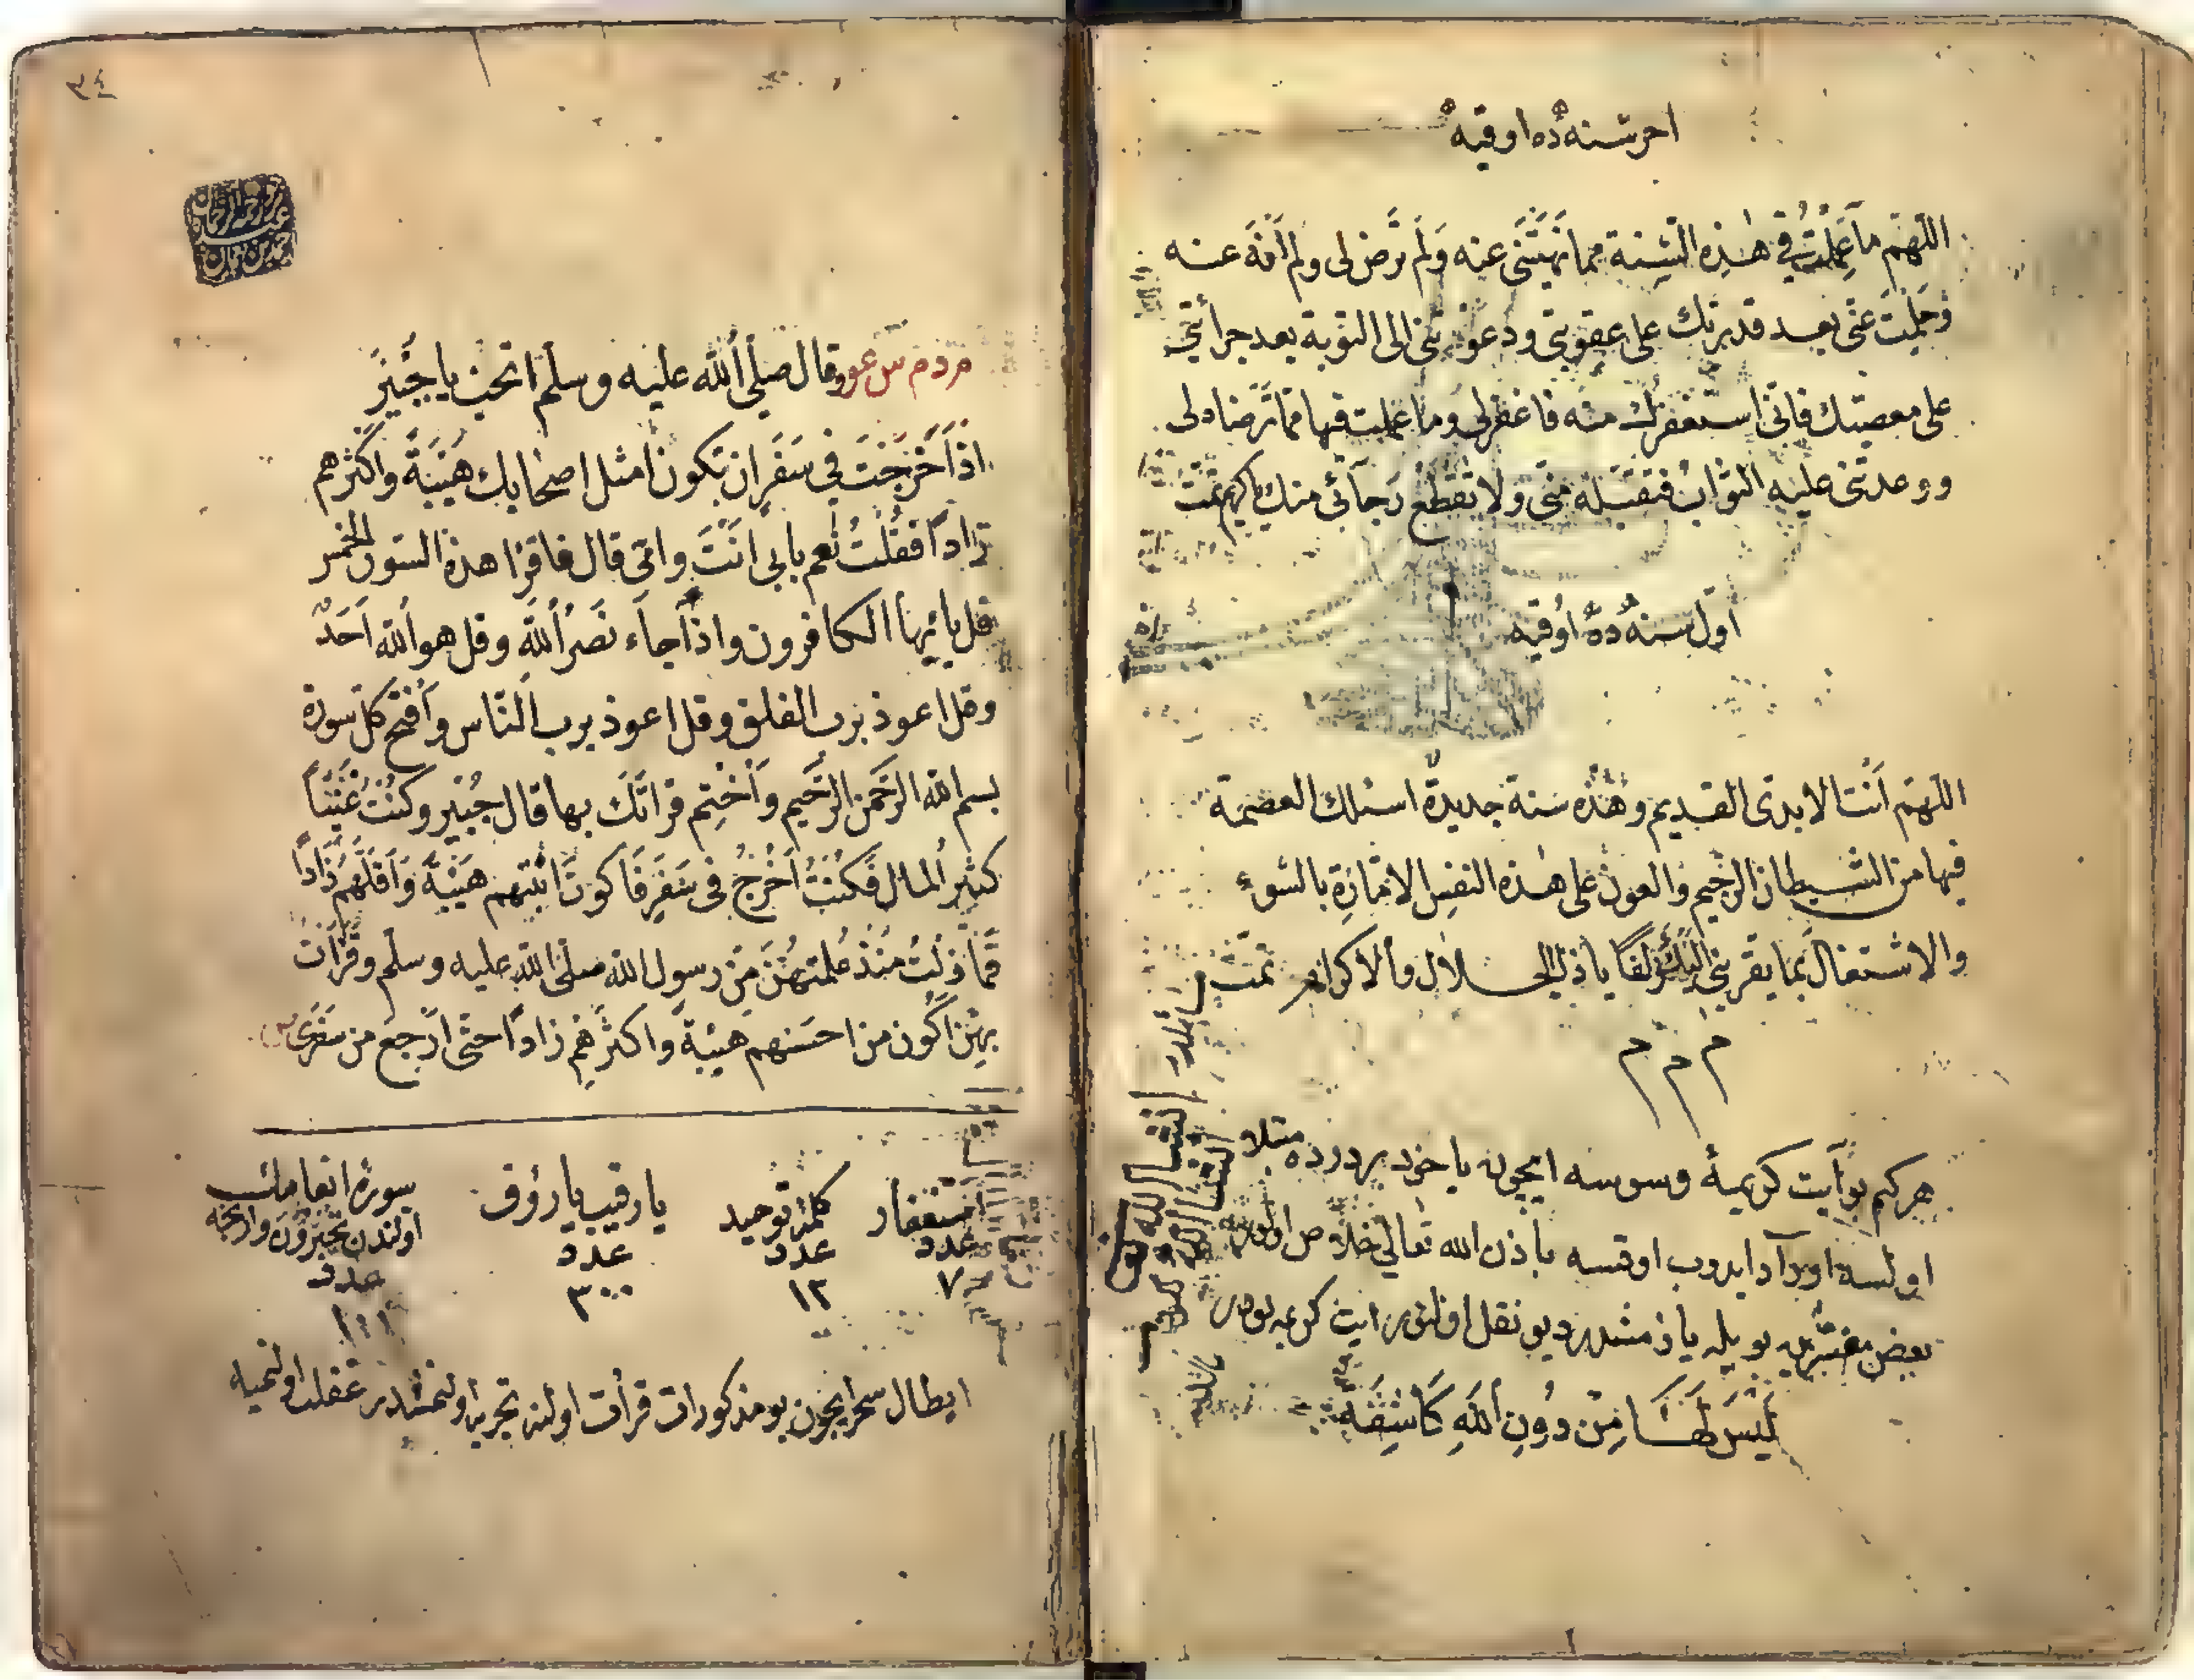 اخر سنه ده اوقیه
اللهم ما عملت في هذه السنة مما نهيتني عنه ولم ترض لى ولم انه عنه
وحلمت عنى بعد قدرتك على عقوبتى ودعوتنى الى التوبة بعد جرائتى
على معصيتك فانى استغفرك منه فاغفرلى وما عملت فيها مما ترضاه لى
ووعدتنى عليه الثواب فتقبله منى ولا تقطع رجائى منك ياكريم تمت
اول سنه ده اوقیه
اللهم انت الابدى القديم وهذه سنة جديدة اسئلك العصمة
فيها من الشيطان الرجيم والعون على هذه النفس الامارة بالسوء
والاشتغال بما يقربنى اليك زلفا ياذا الجلال والاكرام تمت
م م م
هركم بو آيت كريمة وسوسه ايچون ياخود بر درده مبتلا
اولسه اوراد ايدوب اوقسه باذن الله تعالى خلاص اولور
بعض مفسرين بويله يازمشدر ديو نقل اولنور آيت كريمه بودر
ليس لها من دون الله كاشفة
٣٤
وقال صلى الله عليه وسلم اتحب يا جبير
اذا خرجت في سفر ان تكون امثل اصحابك هيئة واكثرهم
زادا فقلت نعم بابى انت وامى قال فاقرا هذه السور الخمس
قل يا ايها الكافرون واذا جاء نصر الله وقل هو الله احد
وقل اعوذ برب الفلق وقل اعوذ برب الناس وافتح كل سورة
بسم الله الرحمن الرحيم واختم قراتك بها قال جبير وكنت غنيا
كثير المال فكنت اخرج فى سفر فاكون ابذهم هيئة واقلهم زادا
فما زلت منذ علمتهن من رسول الله صلى الله عليه وسلم وقرات
بهن اكون من احسنهم هيئة واكثرهم زادا حتى ارجع من سفرى
استغفار عدد ٧٠
كلمة توحيد عدد ١٢
يا رقيب يا رؤف عدد ٣٠٠
سورة انعام
اولندن وارنجه
عدد
١١١
ابطال سحر ايچون بو مذكورات قرأت اولنه تجربه اولنمشدر غفلت اولنميه